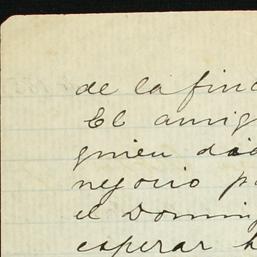 de la finc
El amig
quien dic
negocio p
el Doming
esperar h